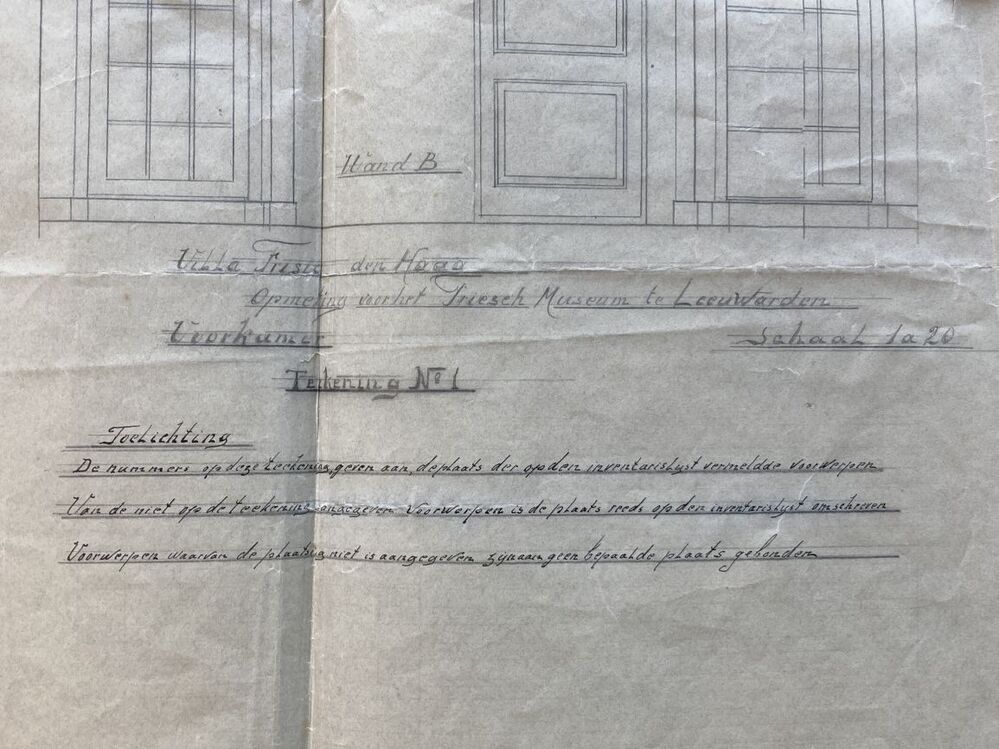 Wand B
Villa Frisia den Haag
Opmeting voor het Friesch Museum te Leeuwarden
Voorkamer
Schaal 1 a 20
Teekening No 1
Toelichting
De nummers op deze teekening, geven aan, de plaats der op den inventarislyst vermeldde voorwerpen
Van de niet op de teekening aangegeven voorwerpen is de plaats reeds op den inventarislyst omschreven
Voorwerpen waarvan de plaatsing niet is aangegeven zijn aan geen bepaalde plaats gebonden